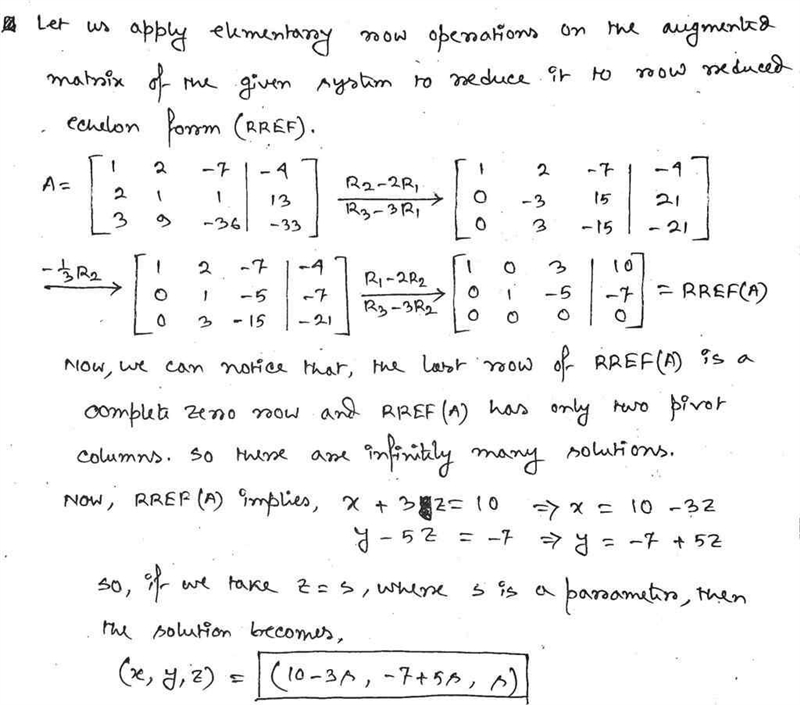 Let us apply elementary row operations on the augmented
matrix of the given system to reduce it to row reduced
echelon form (RREF).
A = [ 1 2 -7 | -4 ; 2 1 1 | 13 ; 3 9 -36 | -33 ] R2-2R1, R3-3R1 → [ 1 2 -7 | -4 ; 0 -3 15 | 21 ; 0 3 -15 | -21 ]
-1/3 R2 → [ 1 2 -7 | -4 ; 0 1 -5 | -7 ; 0 3 -15 | -21 ] R1-2R2, R3-3R2 → [ 1 0 3 | 10 ; 0 1 -5 | -7 ; 0 0 0 | 0 ] = RREF(A)
Now, we can notice that, the last row of RREF(A) is a
complete zero row and RREF(A) has only two pivot
columns. So there are infinitely many solutions.
Now, RREF(A) implies, x + 3z = 10 ⇒ x = 10 - 3z
y - 5z = -7 ⇒ y = -7 + 5z
So, if we take z = s, where s is a parameter, then
the solution becomes,
(x, y, z) = (10-3s, -7+5s, s)